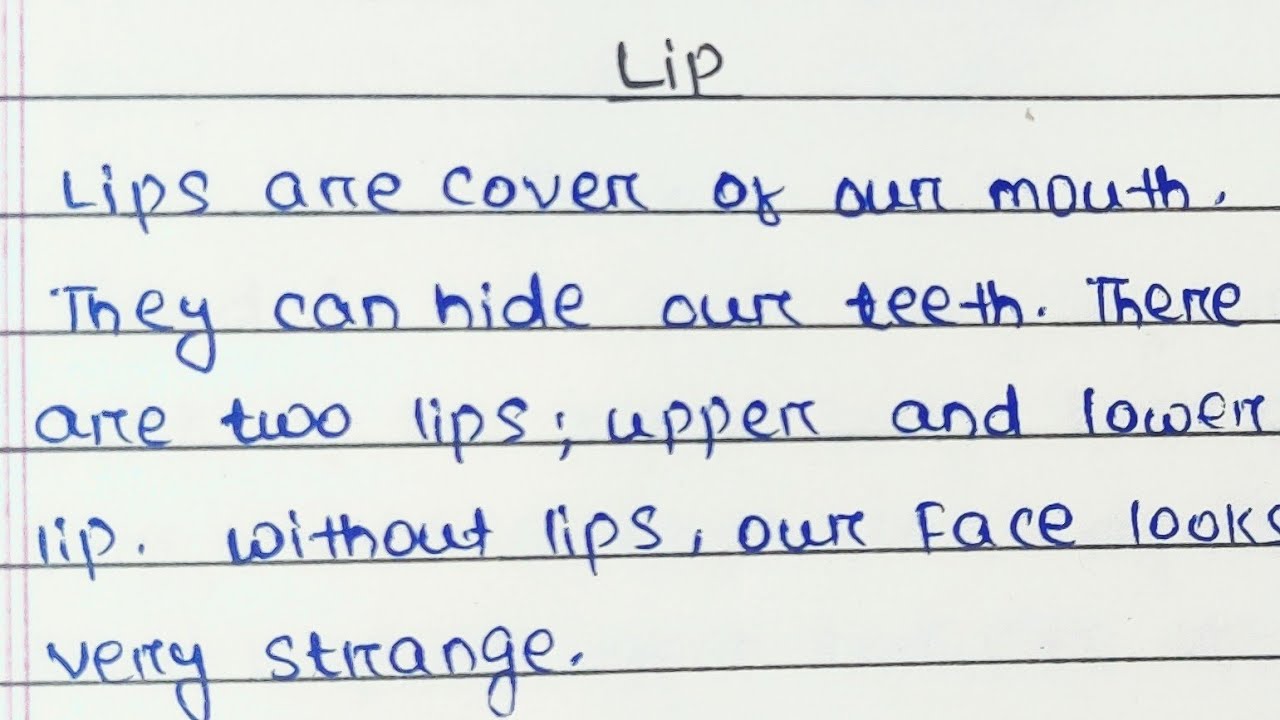 Lip
Lips are cover of our mouth.
They can hide our teeth. There
are two lips; upper and lower
lip. without lips, our Face looks
very strange.